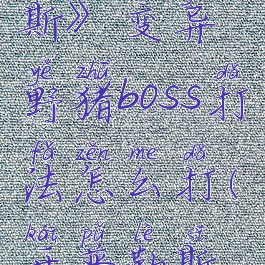 斯》 变异
yě zhū dǎ
野猪boss打
fǎ zěn me dǎ
法怎么打(
kǎi pǔ lè sī
普勒斯